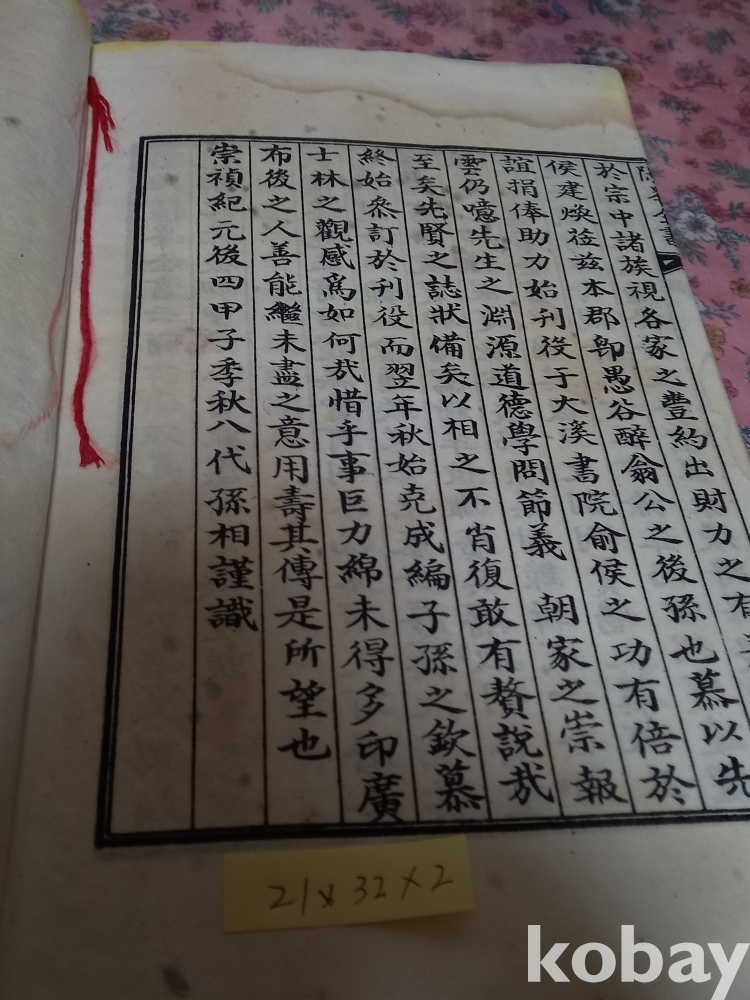 全書
於宗中諸族視各家之豊約出財力之有
侯建煥莅兹本郡卽愚谷醉翁公之後孫也慕以先
誼捐俸助力始刊役于大溪書院俞侯之功有倍於
雲仍噫先生之淵源道德學問節義 朝家之崇報
至矣先賢之誌狀備矣以相之不肖復敢有贅說㢤
終始叅訂於刊役而翌年秋始克成編子孫之欽慕
士林之觀感爲如何㢤惜乎事巨力綿未得多印廣
布後之人善能繼未盡之意用壽其傳是所望也
崇禎紀元後四甲子季秋八代孫相謹識
21x32x2
kobay